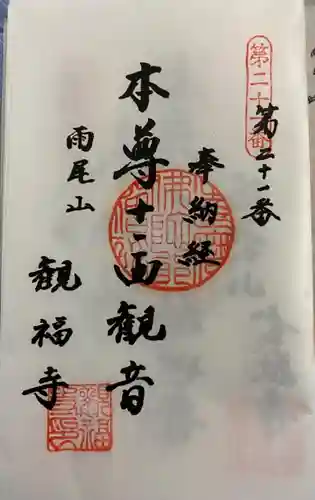 第二十一番
第二十一番
奉納経
本尊十一面観音
雨尾山
観福寺